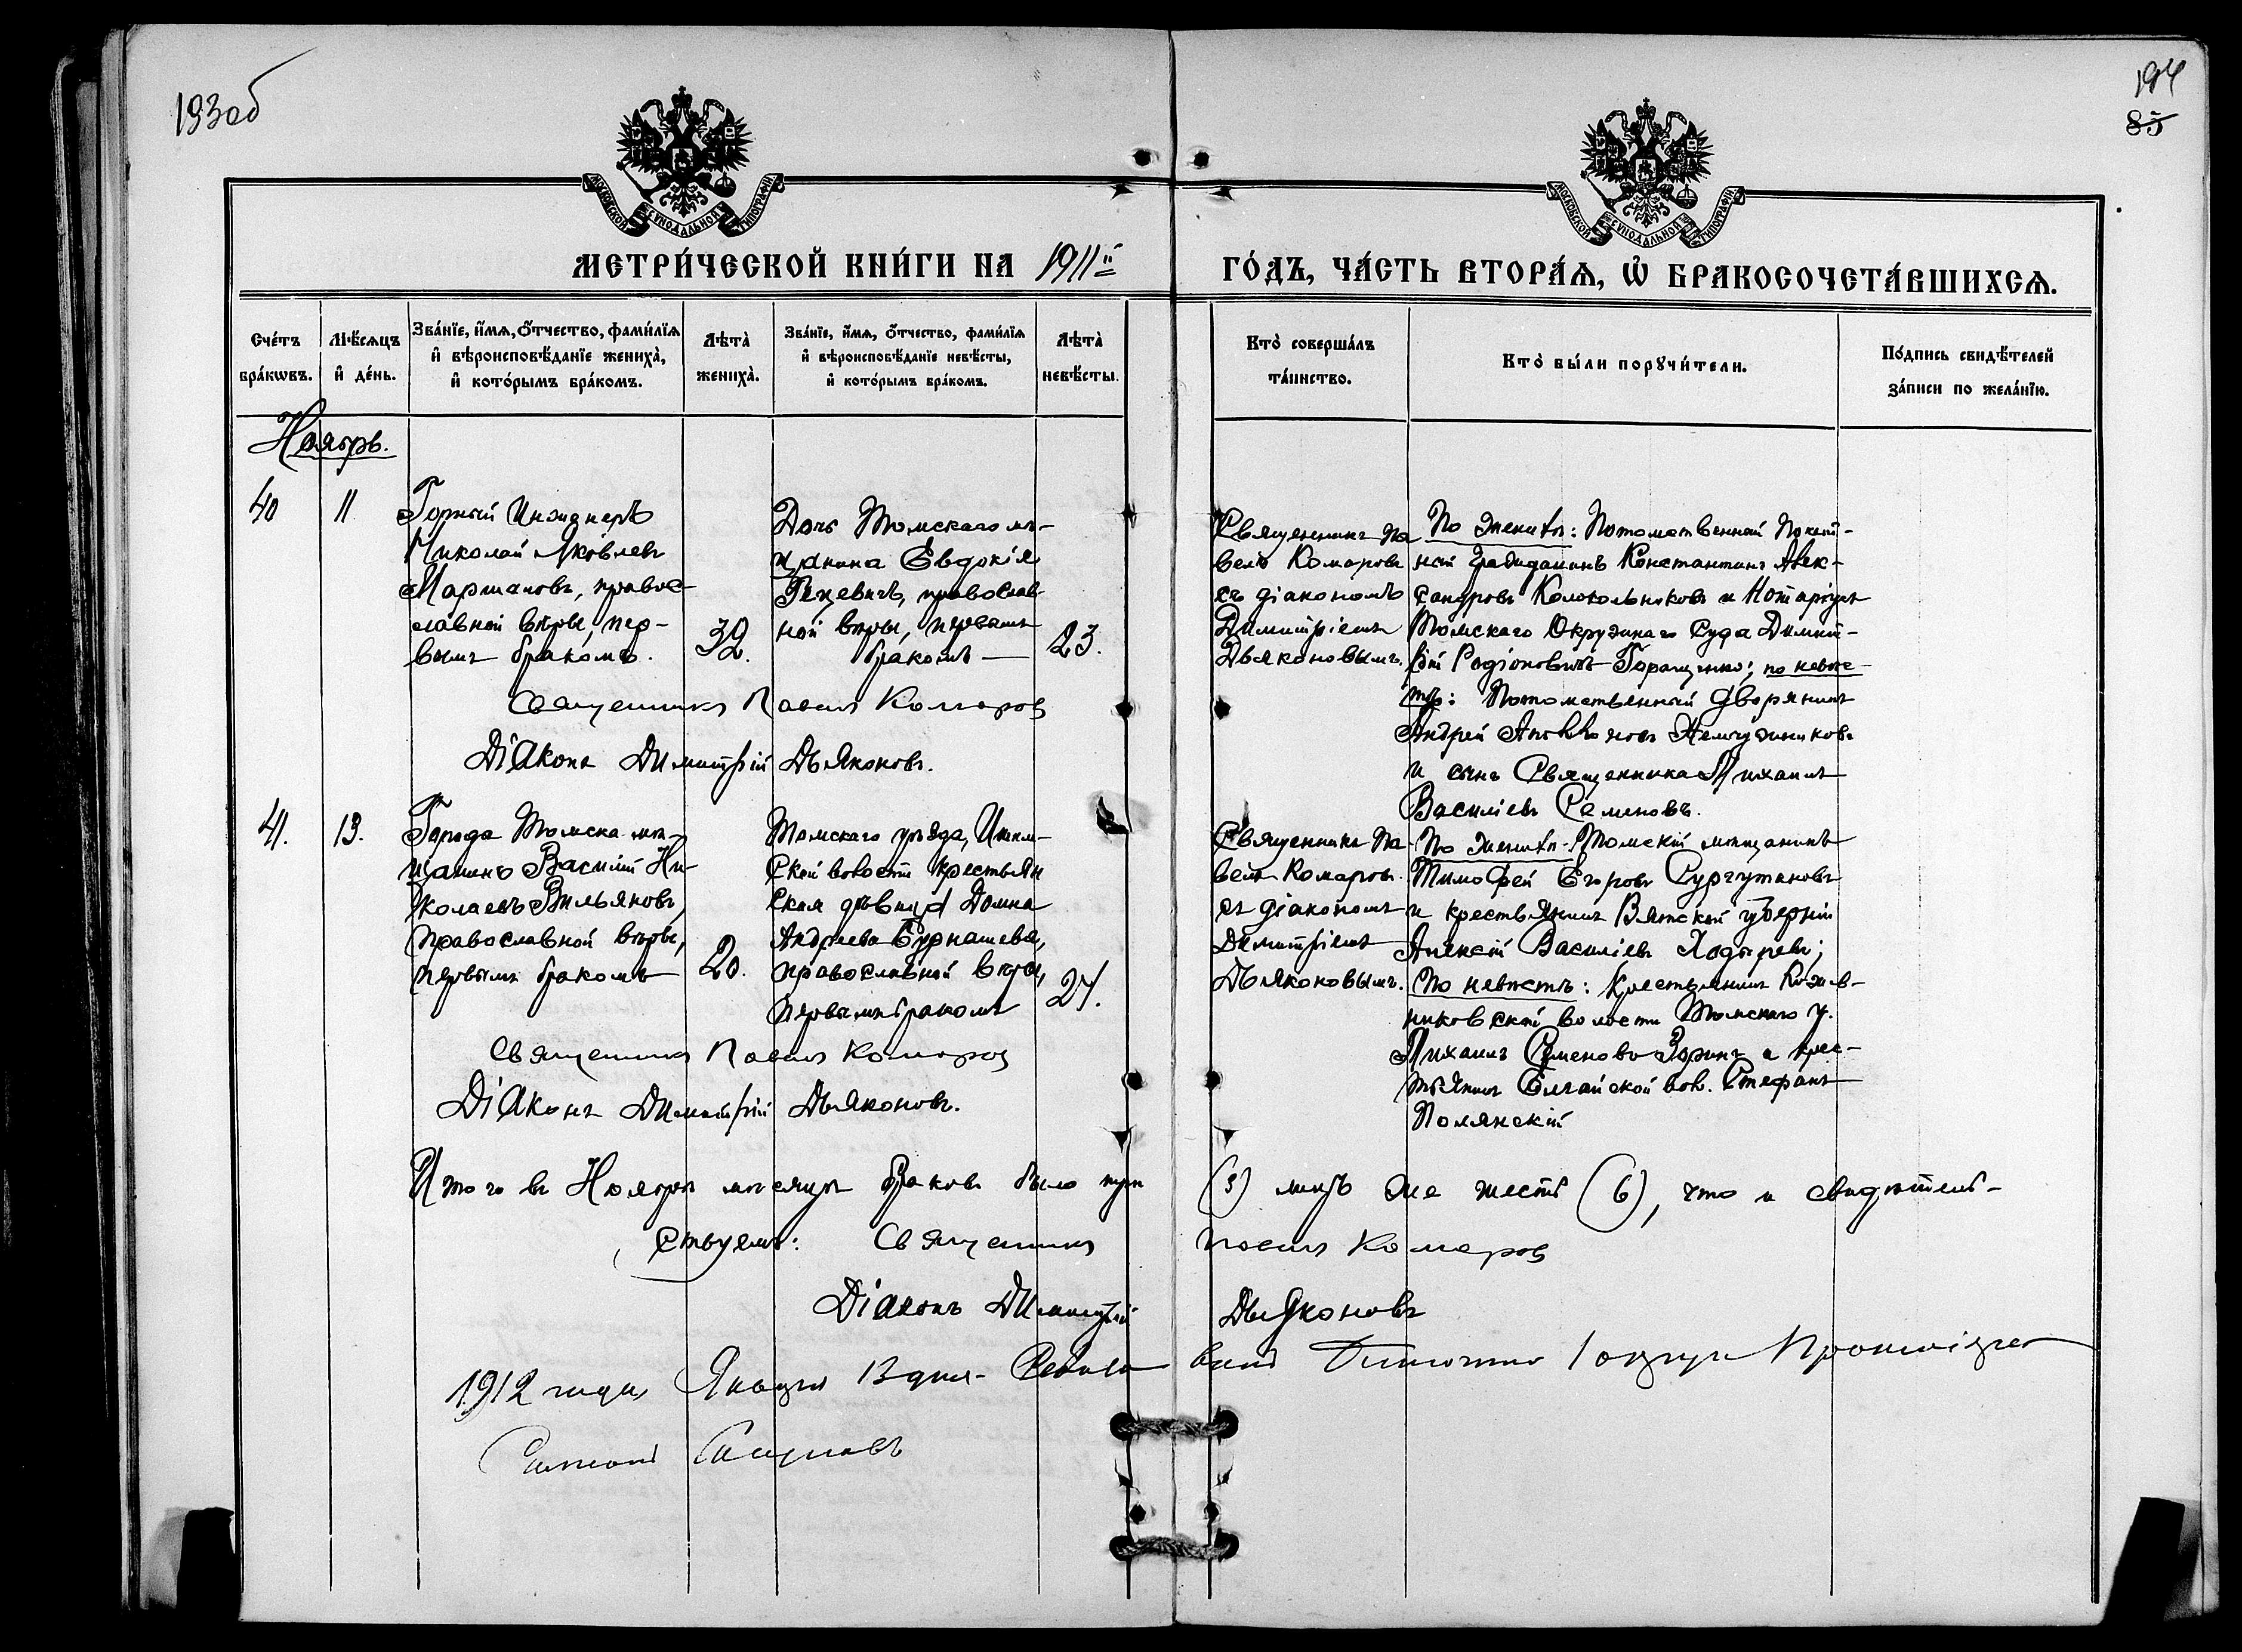 193об
194
85
МОСКОВСКОЙ СѴНОДАЛЬНОЙ ТИПОГРАФІИ
МОСКОВСКОЙ СѴНОДАЛЬНОЙ ТИПОГРАФІИ
МЕТРИ́ЧЕСКОЙ КНИ́ГИ НА 1911й
ГО́ДЪ, ЧА́СТЬ ВТОРА́Ѧ, Ѽ БРАКОСОЧЕТА́ВШИХСѦ.
Сче́тъ бра́кѡвъ.
Мѣ́сѧцъ и҆ де́нь.
Зва́нїе, и҆́мѧ, ѻ҆́тчество, фами́лїѧ и҆ вѣроисповѣ́данїе жениха̀, и҆ кото́рымъ бра́комъ.
Лѣта̀ жениха̀.
Зва́нїе, и҆́мѧ, ѻ҆́тчество, фами́лїѧ и҆ вѣроисповѣ́данїе невѣ́сты, и҆ кото́рымъ бра́комъ.
Лѣта̀ невѣ́сты.
Кто̀ соверша́лъ та́инство.
Кто̀ бы́ли порꙋчи́тели.
По́дпись свидѣ́телей за́писи по жела́нїю.
Ноябрь.
40
11
Горный Инженеръ
Николай Яковлевъ
Мартановъ, правос-
лавной вѣры, пер-
вымъ бракомъ.
32.
Дочь Томскаго мѣ-
щанина Евдокія
Гецевичъ, православ
ной вѣры, первымъ
бракомъ
23.
Священникъ Па
велъ Комаровъ
съ діакономъ
Димитріемъ
Дьяконовымъ.
По женихѣ: Потомственный Почет-
ный Гражданинъ Константинъ Алек-
сандровъ Колокольниковъ и Нотаріусъ
Томскаго Окружнаго Суда Димит-
рій Родіоновичъ Геращенко; по невѣс-
тѣ: Потомственный Дворянинъ
Андрей Аполлоновъ Жемчужниковъ
и сынъ Священника Михаилъ
Василіевъ Семеновъ.
Священникъ Павелъ Комаровъ
Діаконъ Димитрій Дьяконовъ.
41.
13.
Города Томска мѣ-
щанинъ Василій Ни-
колаевъ Вильяновъ,
православной вѣры,
первымъ бракомъ
20.
Томскаго уѣзда,
ской волости крестьян
ская дѣвица Домна
Андреева Бурнашева,
православной вѣры,
первымъ бракомъ
24.
Священникъ Па
велъ Комаровъ
съ діакономъ
Димитріемъ
Дьяконовымъ.
По женихѣ - Томскій мѣщанинъ
Тимофей Егоровъ Сургутановъ
и крестьянинъ Вятской губерніи
Алексій Василіевъ Ходыревъ;
по невѣстѣ: Крестьянинъ Кожев-
никовской волости Томскаго у.
Михаилъ Семеновъ Зоринъ и крес-
тьянинъ Елгайской вол. Стефанъ
Полянскій
Священникъ Павелъ Комаровъ
Діаконъ Димитрій Дьяконовъ.
Итого въ Ноябрѣ мѣсяцѣ браковъ было три (3) лицъ же шесть (6), что и свидѣтель-
ствуемъ: Священникъ Павелъ Комаровъ
Діаконъ Димитрій Дьяконовъ
1912 года, Января 13 дня. Ревизо валъ Благочинный